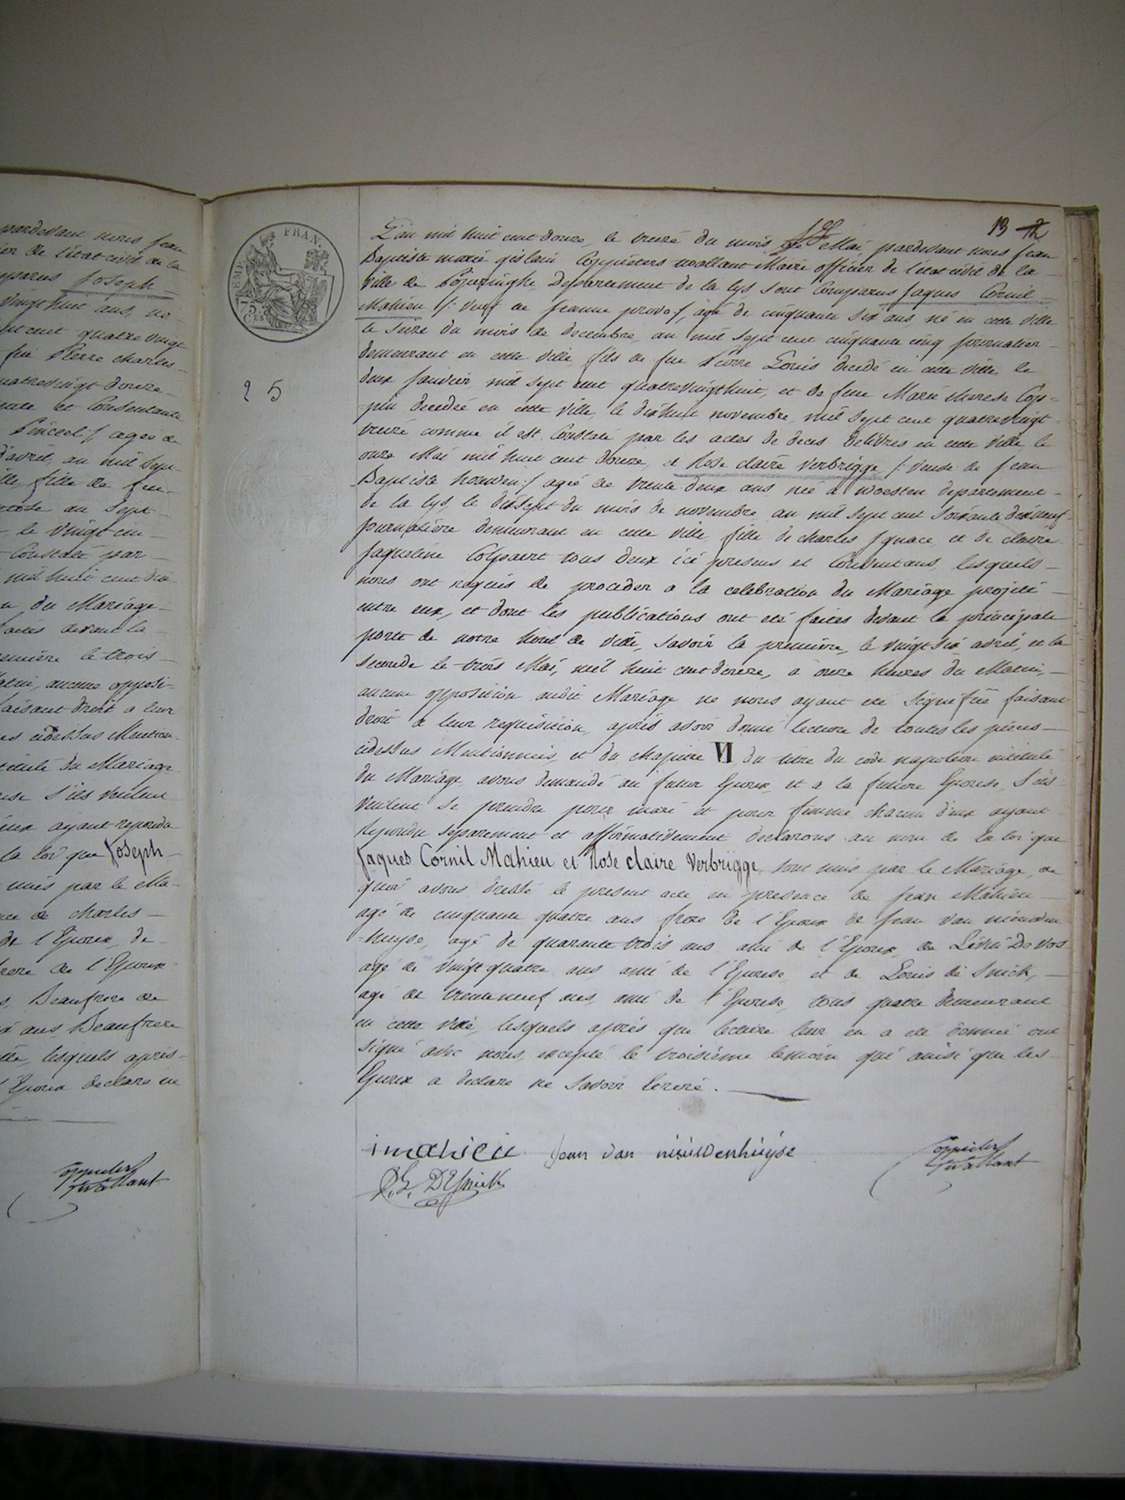 pardevant nous jean
ier de l'état civil de la
mparus Joseph
vingt huit ans, né
sept cent quatre vingt
feu Pierre charles
uatrevingt douze
ente et Consentante
agée de
d'avril au mil sept
ille, fille de feu
au sept
le vingt cin
Constaté par
mil huit cent dou
du Mariage
faites devant la
première le trois
atin, aucune opposi-
faisant droit a leur
es cidessus Mention
intitulé du Mariage
use s'ils veulent
deux ayant repondu
la loi que Joseph
unis par le Ma-
nce de charles
de l'Epoux, de
frere de l'Epoux
s, Beaufrere de
ans Beaufrere
lle, lesquels après
l'Epoux declaré ne
FRAN.
75
25
13
L'an mil huit cent douze, le treize du mois de Mai pardevant nous jean
Baptiste marie gislain Coppieters wallant Maire officier de l'état civil de la
ville de Poperinghe Departement de la lys sont Comparus Jaques Cornil
Mahieu /: veuf de jeanne provo :/ agé de cinquante six ans né en cette ville
le seize du mois de decembre au mil sept cent cinquante cinq journalier
demeurant en cette ville, fils de feu Pierre Louis decedé en cette ville le
deux janvier mil sept cent quatrevingt huit, et de feue Marie therese Cop-
pin decedée en cette ville, le dixhuit novembre mil sept cent quatrevingt
treize comme il est Constaté par les actes de deces delivrés en cette ville le
onze Mai mil huit cent douze, et Rose claire verbrigge /: veuve de jean
Baptiste :/ agée de trente deux ans née a woesten departement
de la lys, le dixsept du mois de novembre au mil sept cent soixante dixneuf
journalière demeurant en cette ville fille de charles Ignace et de claire
jaqueline Colpaert tous deux ici presens et Consentans, lesquels
nous ont requis de proceder a la celebration du Mariage projetté
entre eux, et dont les publications ont été faites devant la principale
porte de notre hotel de ville, savoir la première, le vingt six avril, et la
seconde le trois Mai, mil huit cent douze, à onze heures du Matin,
aucune opposition audit Mariage ne nous ayant été signifiée faisant
droit a leur requisition, après avoir donné lecture de toutes les pièces
cidessus Mentionnées, et du chapitre VI du titre du code napoleon intitulé
du Mariage avons demandé au futur Epoux et a la future Epouse, s'ils
veulent se prendre pour mari et pour femme chacun d'eux ayant
Repondu separement et affirmativement declarons au nom de la loi que
Jaques Cornil Mahieu et Rose claire Verbrigge, sont unis par le Mariage, de
quoi avons dressé le present acte en presence de jean Mahieu
agé de cinquante quatre ans frere de l'Epoux de jean van nieuwen
-huyse, agé de quarante trois ans ami de l'Epoux, de Livin De vos
agé de vingt quatre ans ami de l'Epouse, et de Louis de Snick,
agé de trenteneuf ans, ami de l'Epouse, tous quatre demeurant
en cette ville, lesquels après que lecture leur en a été donnée ont
signé avec nous, excepté le troisième temoin qui ainsi que les
Epoux a declaré ne savoir Ecrire.
i mahieu jean van niuwenhuyse
P. L. DeSnick